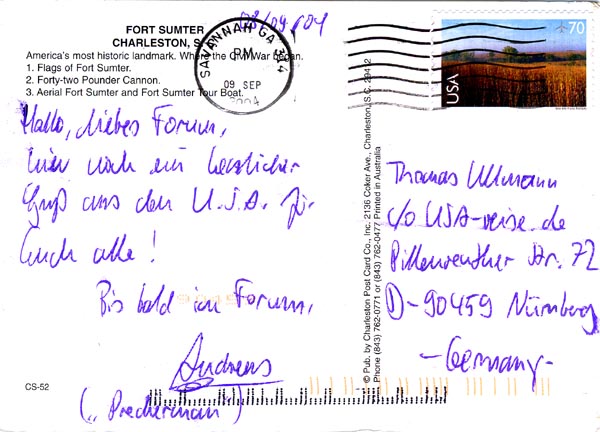 FORT SUMTER
CHARLESTON, S.
America's most historic landmark. Where the Civil War began.
1. Flags of Fort Sumter.
2. Forty-two Pounder Cannon.
3. Aerial Fort Sumter and Fort Sumter Tour Boat.
08/09/04
SAVANNAH GA 314
PM
09 SEP
2004
70
USA
Hallo, liebes Forum,
hier noch ein herzlicher
Gruß aus den U.S.A. für
Euch alle!
Bis bald im Forum,
Andreas
("Prederman")
CS-52
© Pub. by Charleston Post Card Co., Inc. 2136 Coker Ave., Charleston, S.C. 29412
Phone (843) 762-0771 or (843) 762-0477 Printed in Australia
Thomas Ullmann
c/o USA-reise.de
Pillenreuther Str. 72
D-90459 Nürnberg
-Germany-